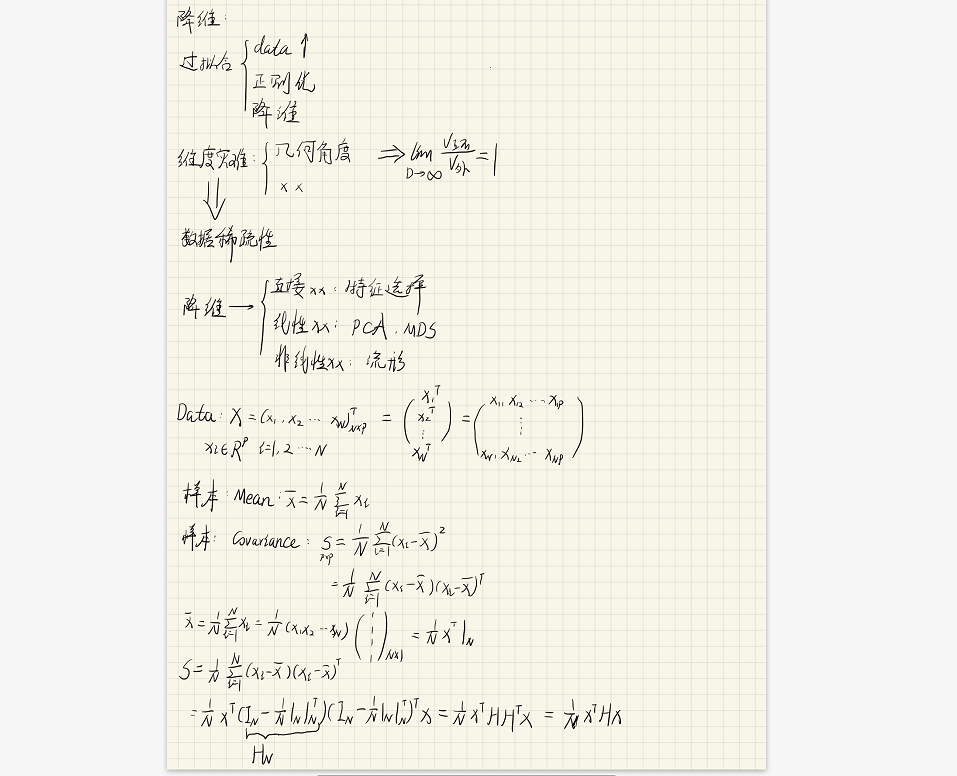 降维:
过拟合 { data ↑
正则化
降维
维度灾难: { 几何角度 ⇒ lim D→∞ V球/V外 = 1
x x
⇓
数据稀疏性
降维 → { 直接xx: 特征选择
线性xx: PCA. MDS
非线性xx: 流形
Data: X = (x₁, x₂ ⋯ x_N)ᵀ_{N×p} = (x₁ᵀ x₂ᵀ ⋮ x_Nᵀ) = (x₁₁ x₁₂ ⋯ x₁p ⋮ x_N₁ x_N₂ ⋯ x_Np)
xᵢ∈Rᴾ i=1,2⋯N
样本: Mean: x̄ = 1/N ∑_{i=1}^{N} xᵢ
样本: Covariance: S_{p×p} = 1/N ∑_{i=1}^{N} (xᵢ-x̄)²
= 1/N ∑_{i=1}^{N} (xᵢ-x̄)(xᵢ-x̄)ᵀ
x̄ = 1/N ∑_{i=1}^{N} xᵢ = 1/N (x₁x₂⋯x_N) (1 ⋮ 1)_{N×1} = 1/N xᵀ 1_N
S = 1/N ∑_{i=1}^{N} (xᵢ-x̄)(xᵢ-x̄)ᵀ
= 1/N xᵀ(I_N - 1/N 1_N 1_Nᵀ)(I_N - 1/N 1_N 1_Nᵀ)ᵀ x = 1/N xᵀHHᵀx = 1/N xᵀHx
H_N